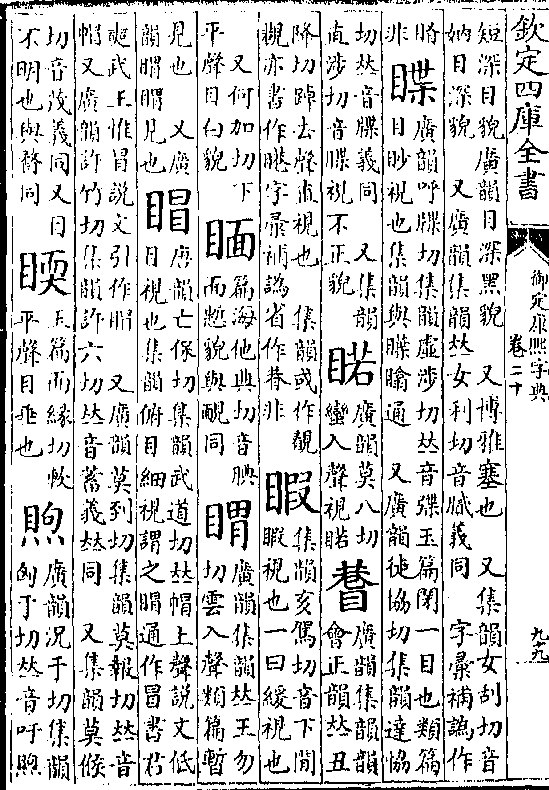 欽定四庫全書
御定康熙字典
卷二十
九九
短深目貌廣韻目深黑貌 又博雅塞也 又集韻女刮切音
妠目深貌 又廣韻集韻𠀤女利切音膩義同 字彙補譌作
非
廣韻呼牒切集韻虛涉切𠀤音弽玉篇閉一目也類篇
目眇視也集韻與通 又廣韻徒協切集韻達協
切𠀤音牒義同 又集韻
直涉切音牒視不正貌
廣韻莫八切
入聲視
廣韻集韻韻
會正韻𠀤丑
降切踔去聲直視也 集韻或作
亦書作字彙補譌省作非
睱
集韻亥駕切音下閒
睱視也一曰緩視也
又何加切下
平聲目白貌
篇海他典切音腆
面慙貌與同
廣韻集韻𠀤王勿
切雲入聲類篇暫
見也 又廣
韻見也
唐韻亡保切集韻武道切𠀤帽上聲說文低
目視也集韻俯目細視謂之通作冒書君
奭武王惟冒說文引作 又廣韻莫到切集韻莫報切𠀤音
帽又廣韻許竹切集韻許六切𠀤音蓄義𠀤同 又集韻莫候
切音茂義同又目
不明也與瞀同
玉篇而緣切軟
平聲目垂也
廣韻況于切集韻
匈于切𠀤音吁